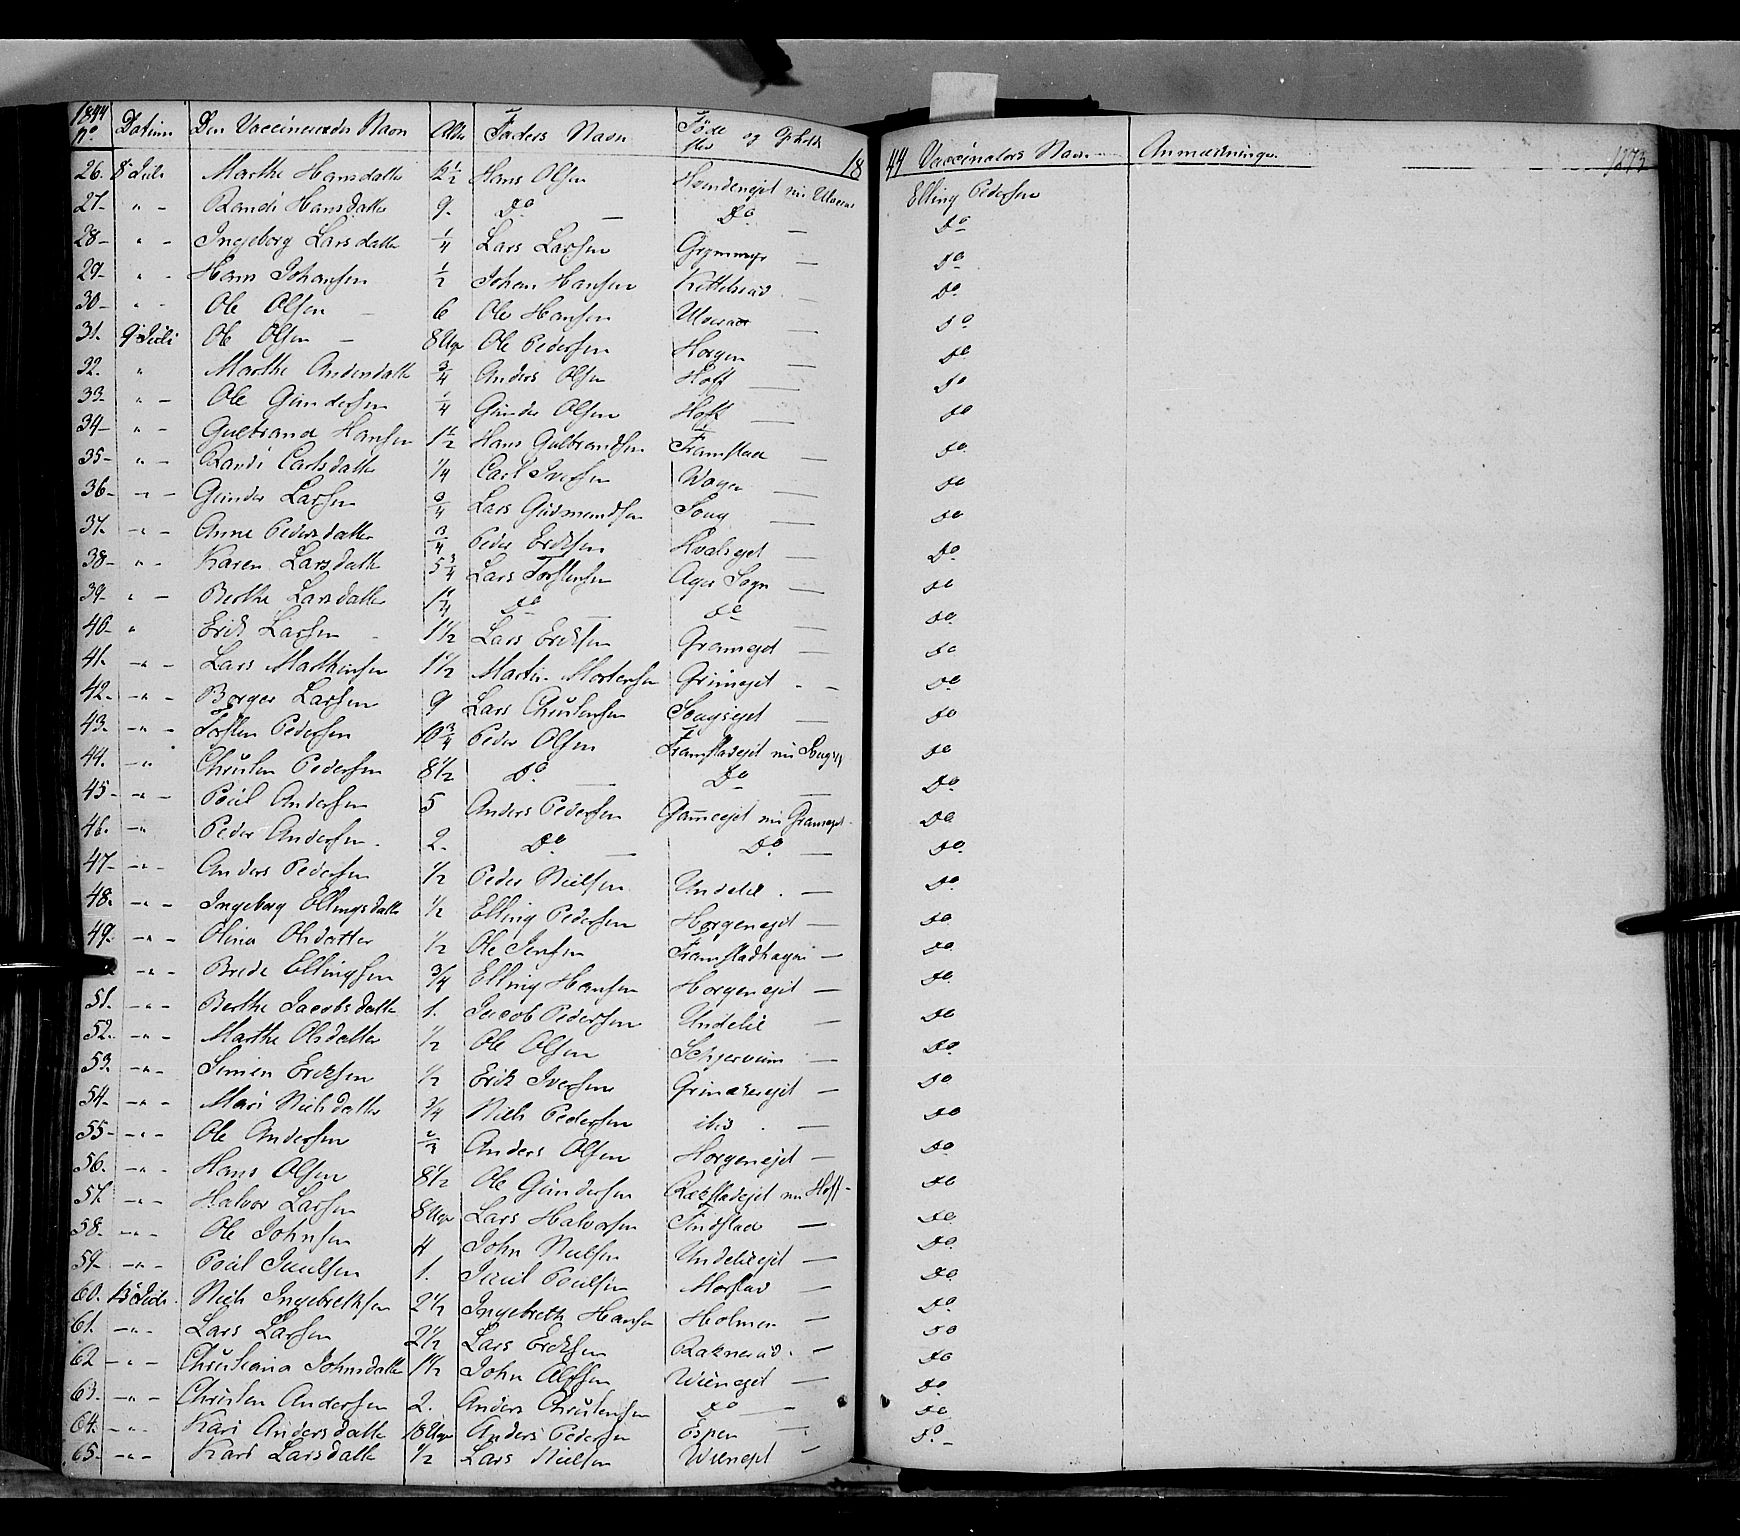 1844
No Datum Den Vaccineredes Navn Alder Faders Navn Føde og Opholds 18
Sted
44 Vaccinators Navn Anmærkninger 1273
26. 8 Juli Marthe Hansdatter 12 1/2 Hans Olsen nu Ulverud Elling Pedersen
27- " - Randi Hansdatter 9. Do - Do - Do
28- " - Ingeborg Larsdatter 1/4 Lars Larsen - Do
29- " - Hans Johansen 1/2 Johan Hansen Kittelsrud - Do
30- " - Ole Olsen - 6 Ole Hansen Ulverud - Do
31. 9 Juli Ole Olsen - 8 Uger Ole Pedersen Horgen - Do
32. " Marthe Andersdatter 3/4 Anders Olsen Hoff - Do
33- " - Ole Gundersen 1/4 Gunder Olsen Hoff - Do
34- " - Gulbrand Hansen 1 1/2 Hans Gulbrandsen Framstad - Do
35- " - Randi Carlsdatter 1/4 Carl Iversen Wagen - Do
36- " - Gunder Larsen 3/4 Lars Gudmundsen Soug - Do
37. - " - Anne Pedersdatter 3/4 Peder Ericksen Hvalsejet - Do
38- " - Karen Larsdatter 5 3/4 Lars Torstensen Ager Sogn - Do
39- " - Berthe Larsdatter 1 1/4 Do - Do - Do
40- " Erik Larsen - 1 1/2 Lars Eriksen Gramejet - Do
41. - " - Lars Marthinsen 1 1/2 Martin Mortensen Grimejet - - Do
42. - " - Borger Larsen 9 Lars Christensen Sougsejet - Do
43. - " - Torsten Pedersen 10 3/4 Peder Olsen Framstadejet nu Sougsej Do
44. - " Christen Pedersen 8 1/2 Do - Do - Do
45- - " - Poul Andersen 5 Anders Pedersen nu Gramejet Do
46. - " Peder Andersen. 2. Do - Do - Do
47- - " - Anders Pedersen 1/2 Peder Nielsen Undelie - Do
48. - " - Ingeborg Ellingsdatter 1/2 Elling Pedersen Horgenejet - Do
49. - " - Olina Olsdatter 1/2 Ole Jensen Framstadhagen - Do
- " - Brede Ellingsen 3/4 Elling Hansen Horgenejet - Do
51. - " - Berthe Jacobsdatter 1. Jacob Pedersen Undelie - Do
52. - " - Marthe Olsdatter 1/2 Ole Olsen - Do
53. - " - Simen Ericksen 1/2 Erik Iversen Grimakerejet - Do
54. - " - Mari Nielsdatter 3/4 Niels Pedersen ibid. - Do
55- - " - Ole Andersen 2/3 Anders Olsen Horgenejet - Do
56. - " - Hans Olsen 8 1/2 Ole Gundersen nu Hoff - Do
57. - " - Halvor Larsen 8 Uger Lars Halvorsen Findstad - Do
58. - " - Ole Johnsen 4 John Nielsen Undelieejet - Do
59. - " - Poul Juulsen 1. Juul Poulsen Morstad - Do
60. 13 Juli. Niels Ingebrethsen 2 1/2 Ingebreth Hansen Holmen - Do
61. - " - Lars Larsen 2 1/2 Lars Ericksen Raknerud. - Do
62 - " - Christiana Johnsdatter 1 1/2 John Alfsen Wienejet - Do
63. - " - Christen Andersen 2. Anders Christensen Do - Do
64. - " - Kari Andersdatter 18 Uger Anders Pedersen Espen - Do
65. - " - Kari Larsdatter 1/2 Lars Nielsen Wienejet - Do -